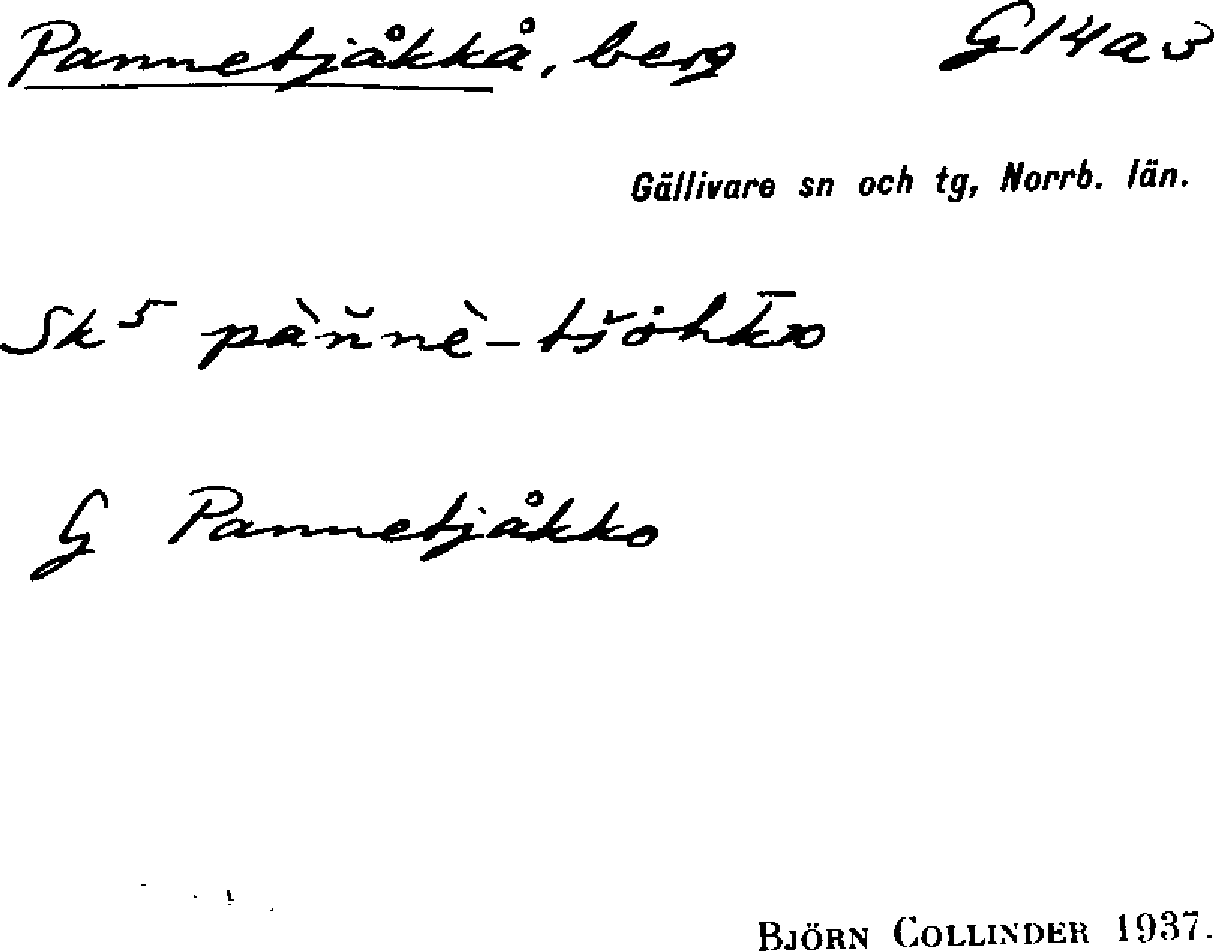 Pannetjåkkå, berg G14a3
Gällivare sn och tg, Norrb. län.
Sk5 pàn̆nè-tšohk̄o
G Pannetjåkko
BJÖRN COLLINDER 1937.